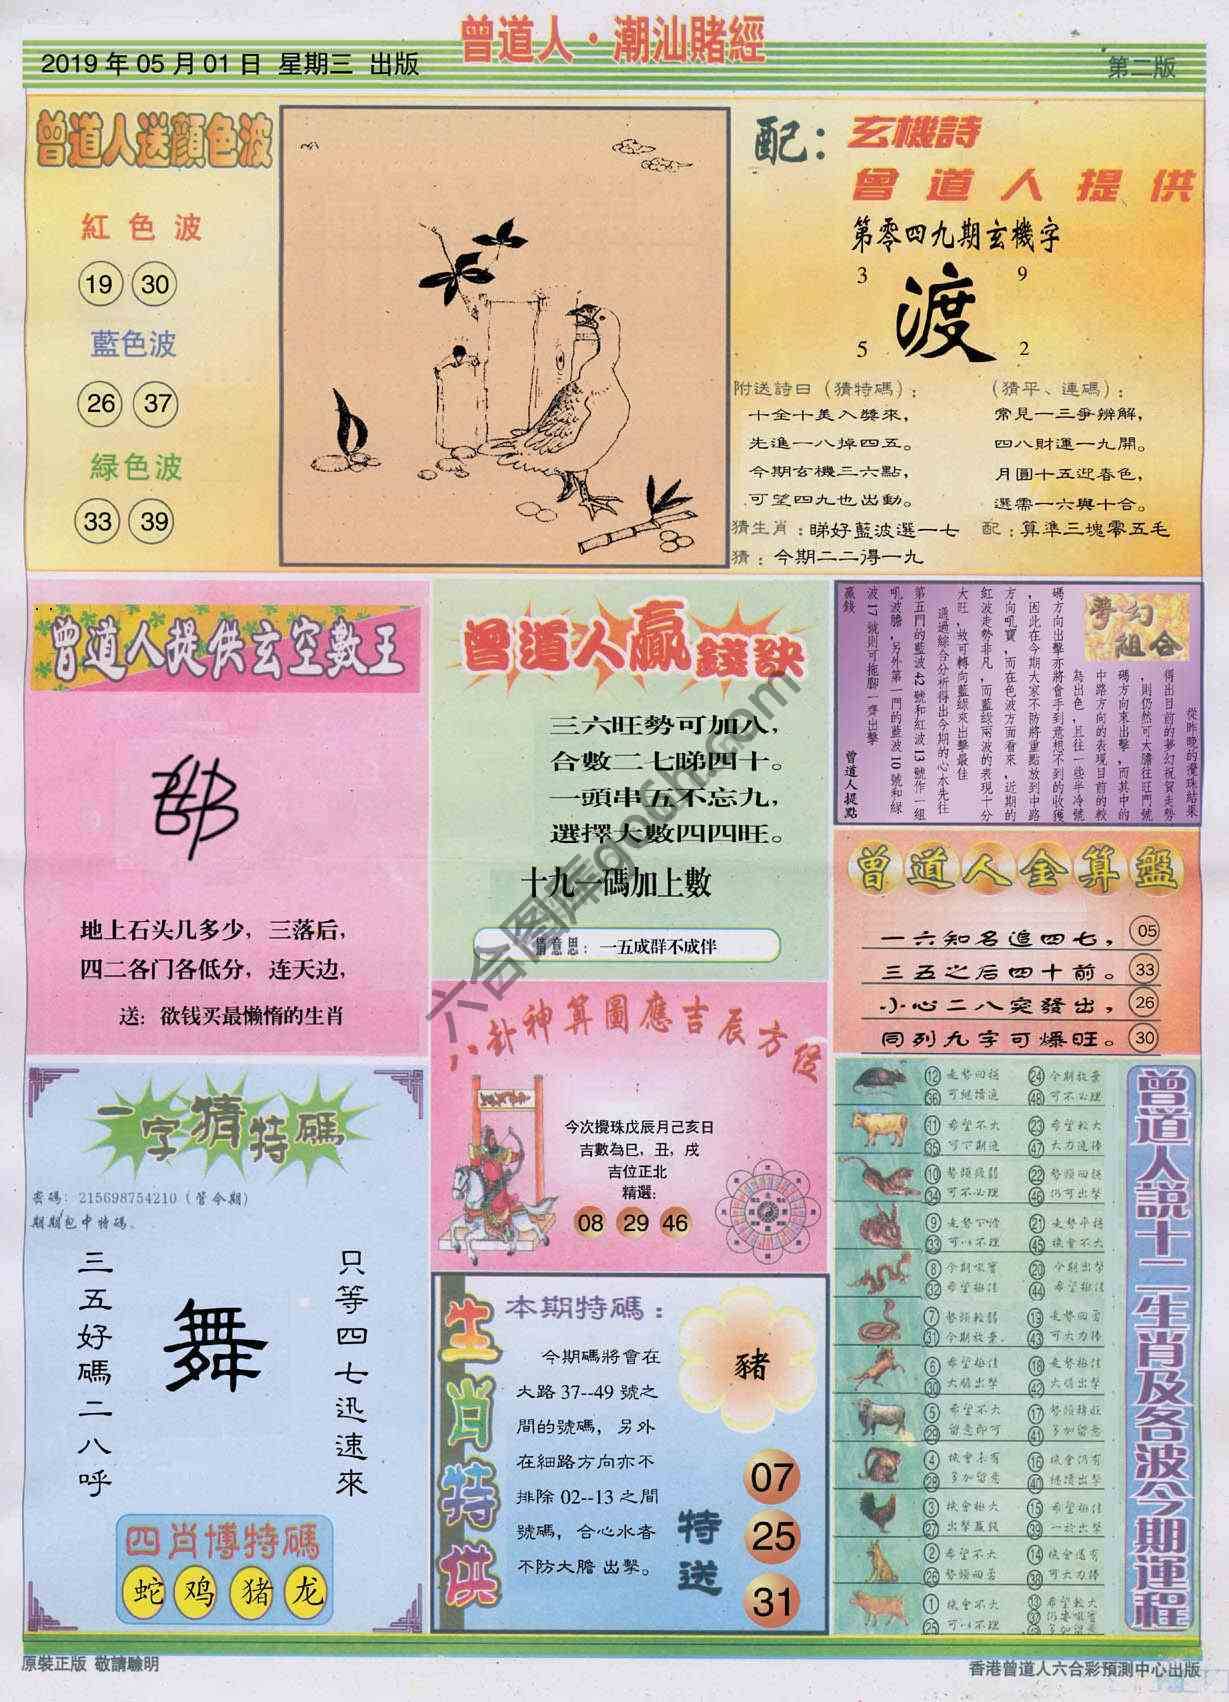 曾道人·潮汕賭經
2019 年 05 月 01 日 星期三 出版
第二版
曾道人送顏色波
紅色波
19 30
藍色波
26 37
緑色波
33 39
配：玄機詩
曾道人提供
第零四九期玄機字
3 9
渡
5 2
附送詩曰（猜特碼）：
十全十美入獎來，
先進一八掉四五。
今期玄機三六點，
可望四九也出動。
（猜平、連碼）：
常見一三爭辨解，
四八財運一九開。
月圓十五迎春色，
選需一六與十合。
猜生肖：睇好藍波選一七
配：算準三塊零五毛
猜：今期二二得一九
曾道人提供玄空數王
地上石头几多少，三落后，
四二各门各低分，连天边，
送：欲钱买最懒惰的生肖
曾道人贏錢訣
三六旺勢可加八，
合數二七睇四十。
一頭串五不忘九，
選擇大數四四旺。
十九一碼加上數
猜意思：一五成群不成伴
夢幻組合
從昨晚的攪珠結果
得出目前的夢幻祝賀走勢
，則仍然可大膽往旺門號
碼方向來出擊，而其中的
中路方向的表現目前的較
為出色，且往一些半冷號
碼方向出擊亦將會手到意想不到的收獲
，因此在今期大家不防將重點放到中路
方向吼寶，而在色波方面看來，近期的
紅波走勢非凡，而藍綠兩波的表現十分
大旺，故可轉向藍綠來出擊最佳
通過綜合分析得出今期的心水先往
第五門的藍波 42 號和紅波 13 號作一組
吼波膽，另外第一門的藍波 10 號和綠
波 17 號則可拖腳一齊出擊
贏錢
曾道人提點
曾道人金算盤
一六知名追四七， 05
三五之后四十前。 33
小心二八突發出， 26
同列九字可爆旺。 30
八卦神算圖應吉辰方位
今次攪珠戊辰月己亥日
吉數為巳，丑，戌
吉位正北
精選：
08 29 46
一字猜特碼
密碼：215698754210（管今期）
期期包中特碼。
只等四七迅速來
舞
三五好碼二八呼
四肖博特碼
蛇 鸡 猪 龙
生肖特供
本期特碼：
今期碼將會在
大路 37--49 號之
間的號碼，另外
在細路方向亦不
排除 02--13 之間
號碼，合心水者
不防大膽 出擊。
豬
特送
07
25
31
曾道人說十二生肖及各波今期運程
12 走勢回穩
36 可繼續追
24 今期放棄
48 可不必理
11 希望不大
35 可下期追
23 希望較大
47 大力追捧
10 勢頭疲弱
34 可不必理
22 勢頭回穩
46 仍可出擊
9 走勢下滑
33 可以不理
21 走勢平穩
45 機會不大
8 今期吸實
32 希望極佳
20 今期出擊
44 希望極佳
7 勢頭較弱
31 今期放棄
19 走勢回勇
43 可大力捧
6 希望極佳
30 大膽出擊
18 走勢極佳
42 大膽出擊
5 希望不大
29 留意即可
17 勢頭轉旺
41 多加留意
4 機會未有
28 多加留意
16 機會仍有
40 繼續出擊
3 機會極大
27 出擊贏錢
15 希望極佳
39 一於出擊
2 希望不大
26 勢頭回勇
14 機會還有
38 可大力捧
1 機會不大
25 可以不理
13 希望較大
37 仍要吸實
49 多加留意
原裝正版 敬請驗明
香港曾道人六合彩預測中心出版
六合图库go6h.com